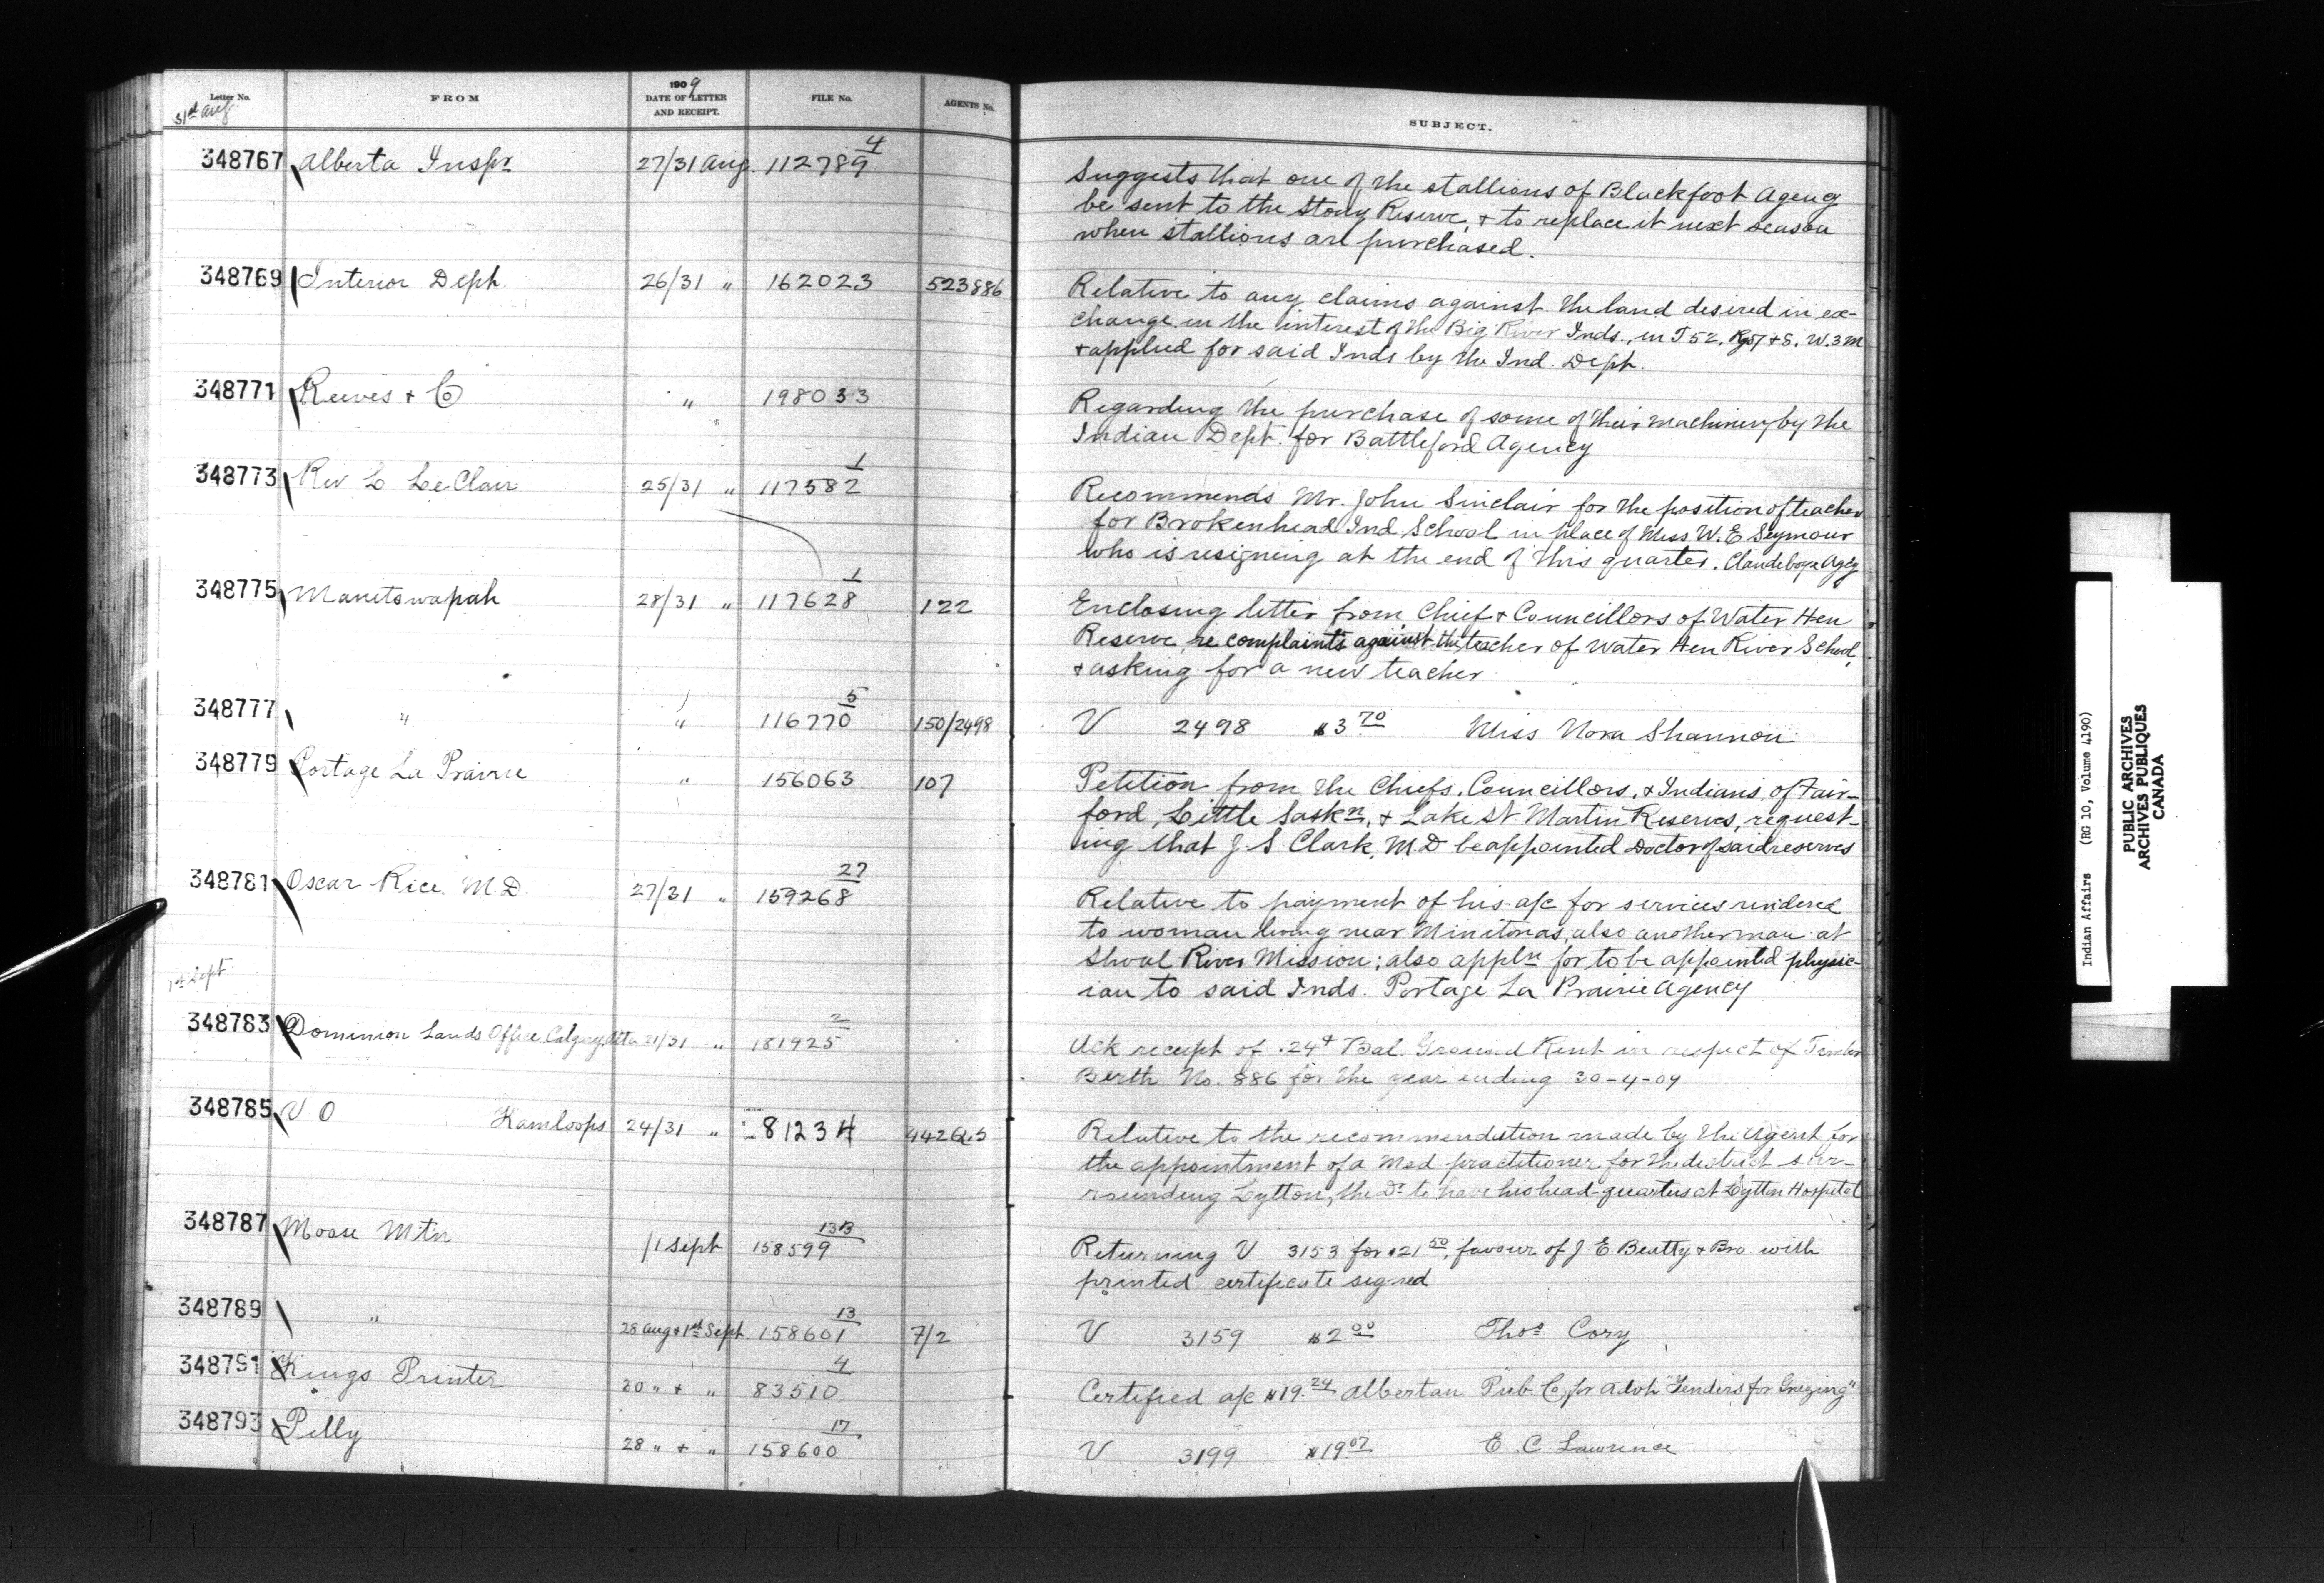 Letter No. FROM 1909 DATE OF LETTER AND RECEIPT. FILE No. AGENTS No. SUBJECT.
31st Aug.
348767 Alberta Inspr 27/31 Aug. 112789 4 Suggests that one of the stallions of Blackfoot Agency
be sent to the Stony Reserve, & to replace it next season
when stallions are purchased.
348769 Interior Dept. 26/31 " 162023 523886 Relative to any claims against the land desired in ex-
change in the interest of the Big River Inds., in T 52, Rgs 7 & 8, W. 3 M
& applied for said Inds by the Ind. Dept.
348771 Reeves & Co " 198033 Regarding the purchase of some of their machinery by the
" Indian Dept. for Battleford Agency
348773 Rev L LeClair 25/31 " 117582 1 Recommends Mr. John Sinclair for the position of teacher
for Brokenhead Ind School in place of Miss W. E Seymour
who is resigning at the end of this quarter. Clandeboye Agcy
348775 Manitowapah 28/31 " 117628 1 122 Enclosing letter from Chief & Councillors of Water Hen
Reserve, re complaints against the teacher of Water Hen River School,
& asking for a new teacher
348777 " " 116770 5 150/2498 V 2498 $3 70 Miss Nora Shannon
348779 Portage La Prairie " 156063 107 Petition from the Chiefs, Councillors, & Indians, of Fair-
ford, Little Saskn, & Lake St. Martin Reserves, request-
ing that J. S. Clark, M.D be appointed Doctor of said reserves
348781 Oscar Rice M.D. 27/31 " 159268 27 Relative to payment of his a/c for services rendered
to woman living near Minitonas, also another man at
Shoal River Mission; also appln for to be appointed physic-
ian to said Inds. Portage La Prairie Agency
1st Sept
348783 Dominion Lands Office Calgary, Alta 21/31 " 181425 2 Ack receipt of .24¢ Bal. Ground Rent in respect of Timber
Berth No. 886 for the year ending 30-4-09
348785 V. O Kamloops 24/31 " 81234 Relative to the recommendation made by the Agent for
the appointment of a Med practitioner for the district sur-
rounding Lytton, the Dr to have his head-quarters at Lytton Hospital
348787 Moose Mtn /1 Sept 158599 13B Returning V 3153 for $21 50, favour of J. E. Beatty & Bro. with
printed certificate signed
348789 " 28 Aug & 1st Sept. 158601 13 7/2 V 3159 $2 00 Thos Cory
348791 Kings Printer 30 " & " 83510 4 Certified a/c $19.24 Albertan Pub. Co, for advt. "Tenders for Grazing"
348793 Pelly 28 " & " 158600 17 V 3199 $19 07 E. C. Lawrence
Indian Affairs (RG 10, Volume 4190)
PUBLIC ARCHIVES
ARCHIVES PUBLIQUES
CANADA